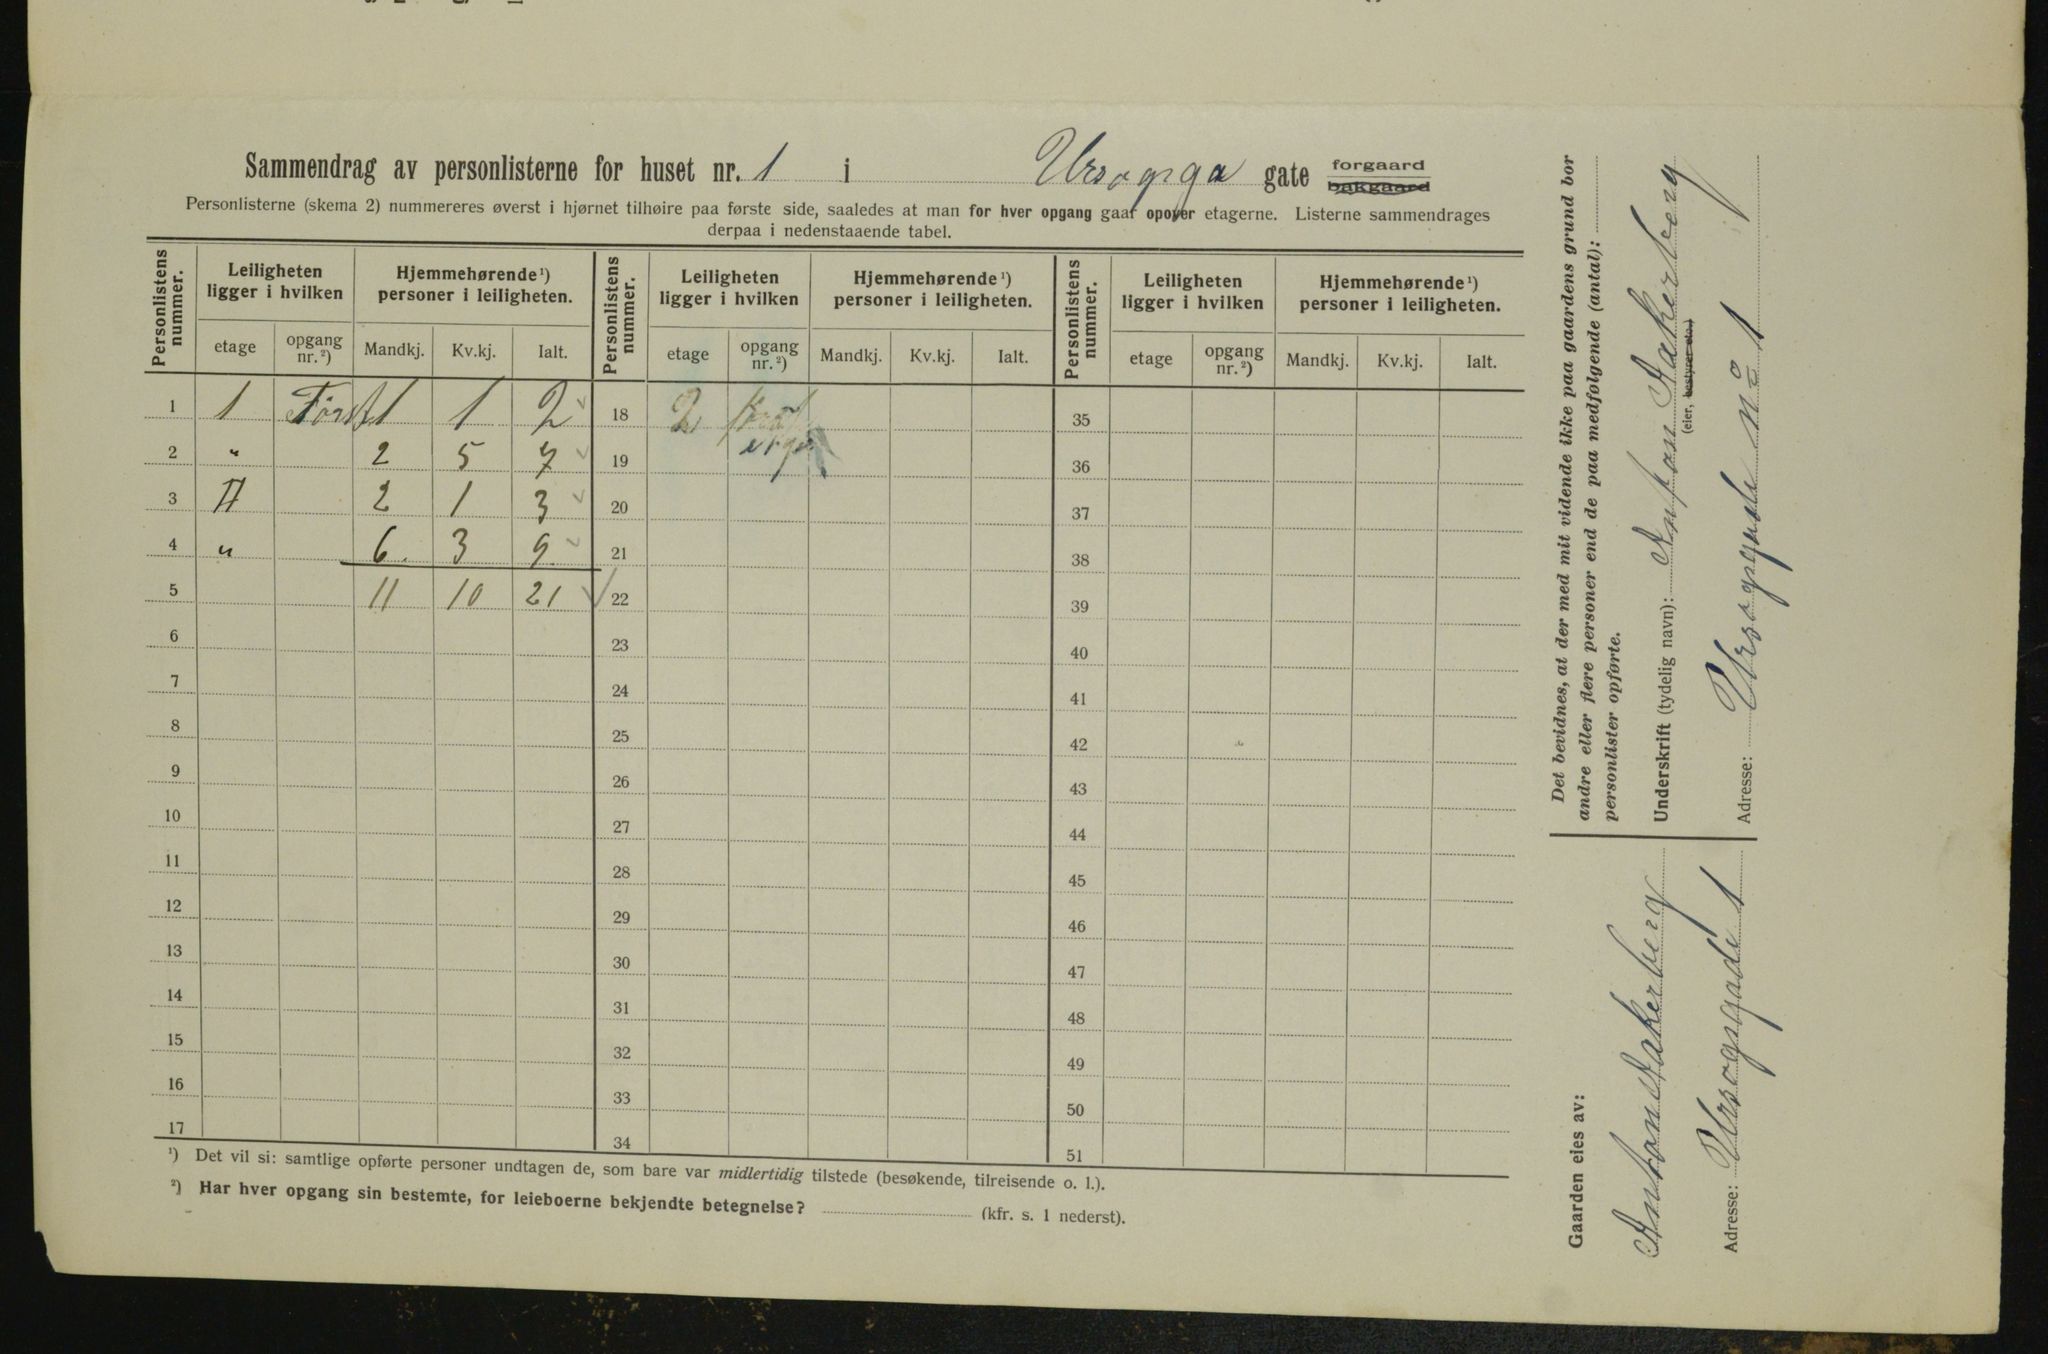 Sammendrag av personlisterne for huset nr. 1 i Ursogsga gate forgaard
bakgaard
Personlisterne (skema 2) nummereres øverst i hjørnet tilhøire paa første side, saaledes at man for hver opgang gaar opover etagerne. Listerne sammendrages
derpaa i nedenstaaende tabel.
Personlistens nummer. Leiligheten ligger i hvilken Hjemmehørende ¹) personer i leiligheten. Personlistens nummer. Leiligheten ligger i hvilken Hjemmehørende ¹) personer i leiligheten. Personlistens nummer. Leiligheten ligger i hvilken Hjemmehørende ¹) personer i leiligheten.
etage opgang nr. ²) Mandkj. Kv.kj. Ialt. etage opgang nr. ²) Mandkj. Kv.kj. Ialt. etage opgang nr. ²) Mandkj. Kv.kj. Ialt.
1 1 Først 1 1 2 18 2 35
2 " 2 5 7 19 36
3 II 2 1 3 20 37
4 " 6 3 9 21 38
5 11 10 21 22 39
6 23 40
7 24 41
8 25 42
9 26 43
10 27 44
11 28 45
12 29 46
13 30 47
14 31 48
15 32 49
16 33 50
17 34 51
¹) Det vil si: samtlige opførte personer undtagen de, som bare var midlertidig tilstede (besøkende, tilreisende o. l.).
²) Har hver opgang sin bestemte, for leieboerne bekjendte betegnelse? (kfr. s. 1 nederst).
Det bevidnes, at der med mit vidende ikke paa gaardens grund bor
andre eller flere personer end de paa medfølgende (antal):
personlister opførte.
Underskrift (tydelig navn): Anton Aakerberg
(eier, bestyrer etc.)
Adresse: Ursogsgade No 1
Gaarden eies av:
Anton Aakerberg
Adresse: Ursogsgade 1